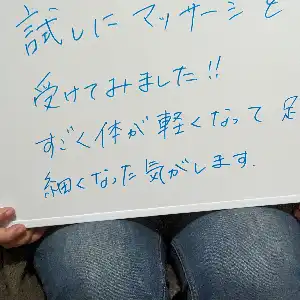 試しにマッサージを
受けてみました!!
すごく体が軽くなって 足
細くなった気がします.